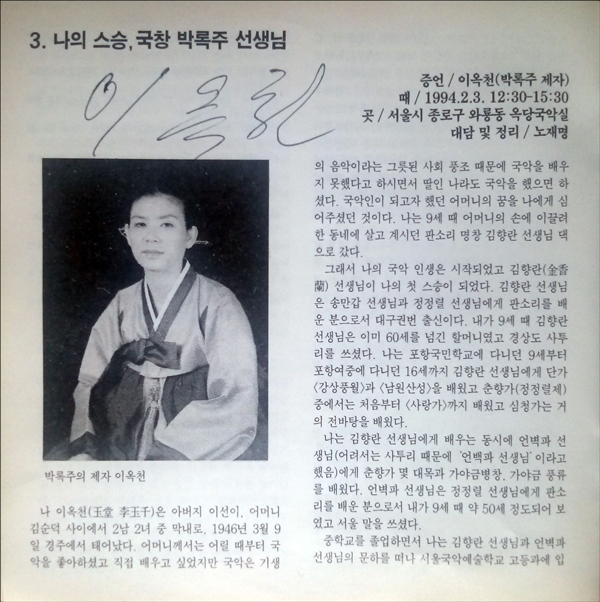 3. 나의 스승, 국창 박록주 선생님
이옥천
증언 / 이옥천(박록주 제자)
때 / 1994.2.3. 12:30-15:30
곳 / 서울시 종로구 와룡동 옥당국악실
대담 및 정리 / 노재명
박록주의 제자 이옥천
나 이옥천(玉堂 李玉千)은 아버지 이선이, 어머니
김순덕 사이에서 2남 2녀 중 막내로, 1946년 3월 9
일 경주에서 태어났다. 어머니께서는 어릴 때부터 국
악을 좋아하셨고 직접 배우고 싶었지만 국악은 기생
의 음악이라는 그릇된 사회 풍조 때문에 국악을 배우
지 못했다고 하시면서 딸인 나라도 국악을 했으면 하
셨다. 국악인이 되고자 했던 어머니의 꿈을 나에게 심
어주셨던 것이다. 나는 9세 때 어머니의 손에 이끌려
한 동네에 살고 계시던 판소리 명창 김향란 선생님 댁
으로 갔다.
그래서 나의 국악 인생은 시작되었고 김향란(金香
蘭) 선생님이 나의 첫 스승이 되었다. 김향란 선생님
은 송만갑 선생님과 정정렬 선생님에게 판소리를 배
운 분으로서 대구권번 출신이다. 내가 9세 때 김향란
선생님은 이미 60세를 넘긴 할머니였고 경상도 사투
리를 쓰셨다. 나는 포항국민학교에 다니던 9세부터
포항여중에 다니던 16세까지 김향란 선생님에게 단가
〈강상풍월〉과 〈남원산성〉을 배웠고 춘향가(정정렬제)
중에서는 처음부터 〈사랑가〉까지 배웠고 심청가는 거
의 전바탕을 배웠다.
나는 김향란 선생님에게 배우는 동시에 언벽파 선
생님(어려서는 사투리 때문에 '언백파 선생님'이라고
했음)에게 춘향가 몇 대목과 가야금병창, 가야금 풍류
를 배웠다. 언벽파 선생님은 정정렬 선생님에게 판소
리를 배운 분으로서 내가 9세 때 약 50세 정도되어 보
였고 서울 말을 쓰셨다.
중학교를 졸업하면서 나는 김향란 선생님과 언벽파
선생님의 문하를 떠나 서울국악예술학교 고등과에 입